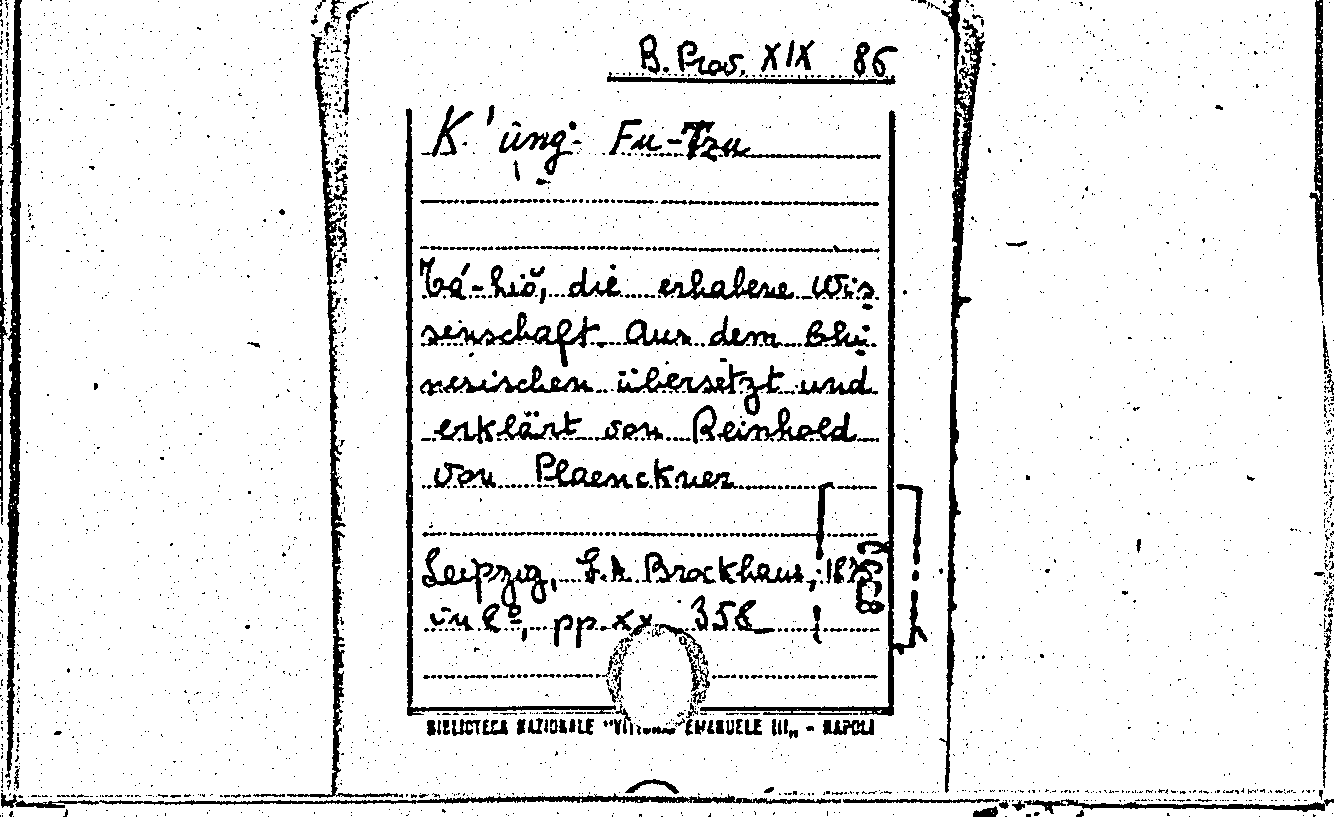 B. Prov. XIX 86
K.'üng- Fu-Tzu
Tá-hiŏ, die erhabene Wis
senschaft. Aus dem Chi-
nesischen übersetzt und
erklärt von Reinhold
von Plaenckner
Leipzig, F. A. Brockhaus,
in 8º, pp. XX 358
BIBLIOTECA NAZIONALE "VITTORIO EMANUELE III„ - NAPOLI